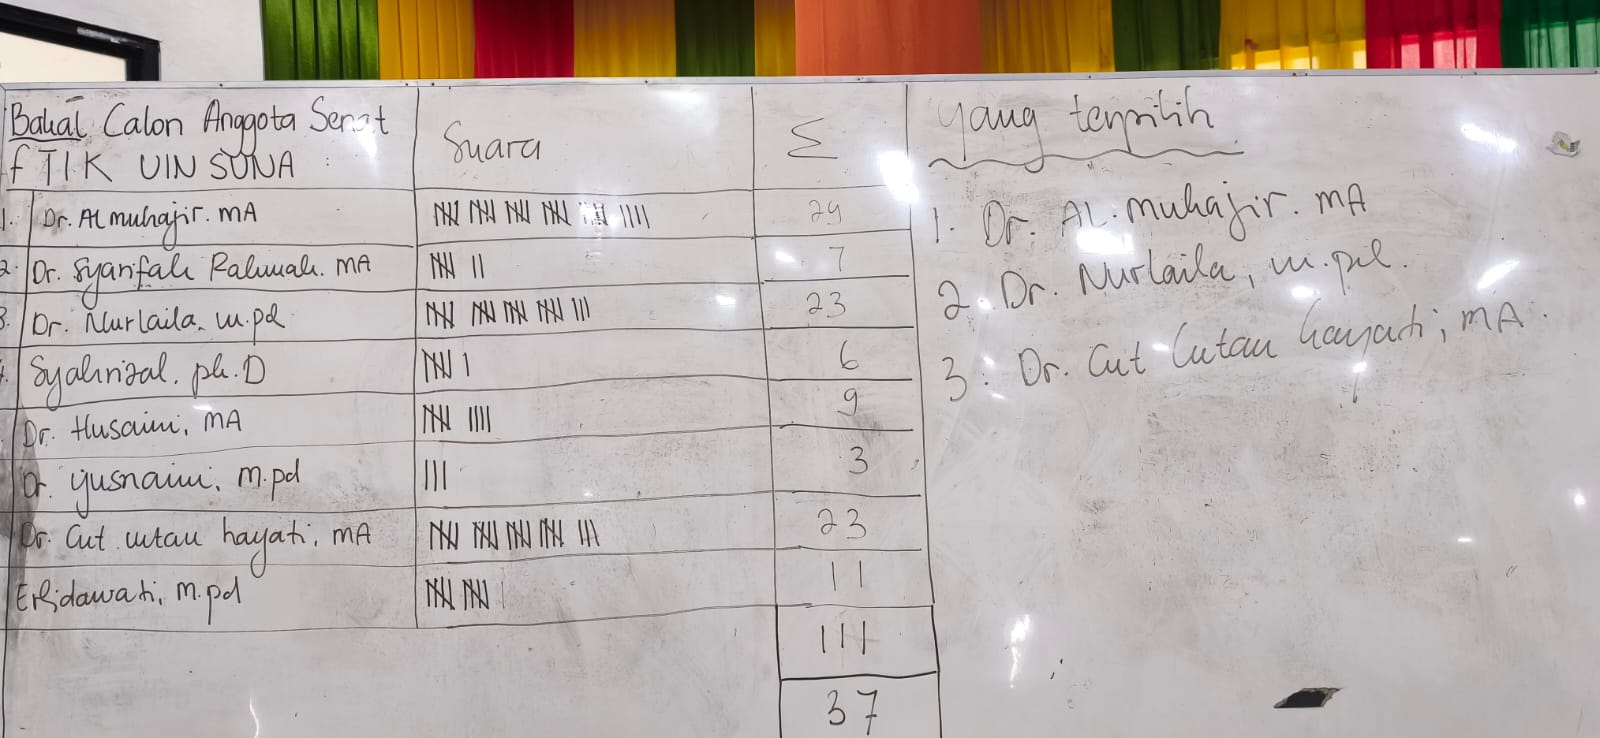 Bakal Calon Anggota Senat
FTIK UIN SUNA :
Suara
Σ
yang terpilih
1. Dr. Al muhajir. MA
29
2. Dr. Syarifah Rahmah. MA
7
3. Dr. Nurlaila, M.pd
23
Syahrizal, ph.D
6
Dr. Husaini, MA
9
Dr. Yusnaini, M.pd
3
Dr. Cut intan hayati, MA
23
Erlidawati, M.pd
11
111
37
1. Dr. AL. Muhajir. MA
2. Dr. Nurlaila, M.pd.
3. Dr. Cut Intan hayati, MA.